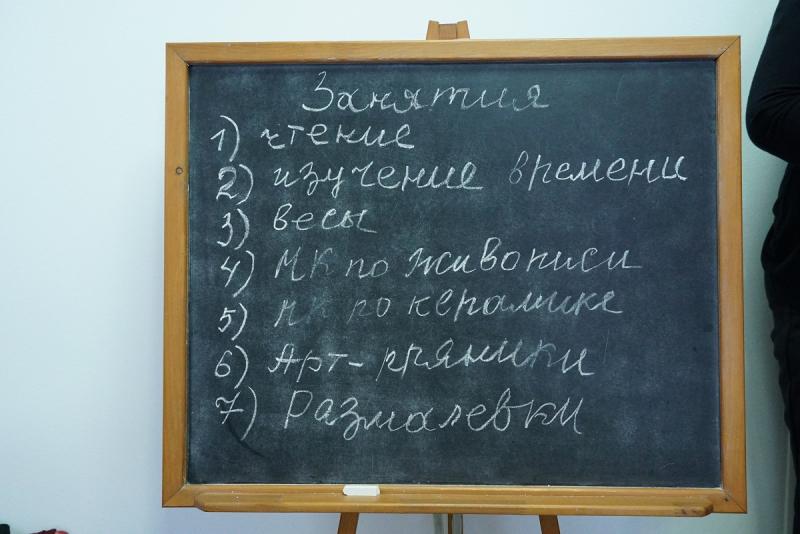 Занятия
1) чтение
2) изучение времени
3) весы
4) МК по живописи
5) МК по керамике
6) Арт-пряники
7) Размалевки